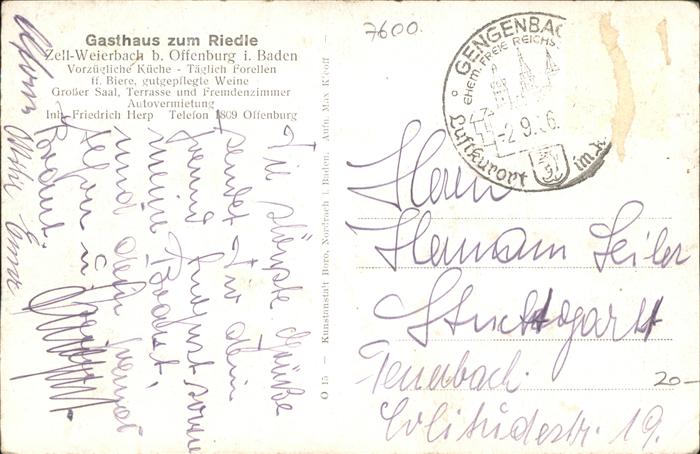 Gasthaus zum Riedle
Zell-Weierbach b. Offenburg i. Baden
Vorzügliche Küche - Täglich Forellen
ff. Biere, gutgepflegte Weine
Großer Saal, Terrasse und Fremdenzimmer
Autovermietung
Inh. Friedrich Herp Telefon 1809 Offenburg
Die Grüße
sendet Dir dein
Freund August sowie
meine Braut,
und dein Freund
u.
Braut.
O 15 — Kunstanstalt Boro, Nordrach i. Baden. Aufn. Max
7600.
GENGENBAC
EHEM. FREIE REICHS
-2.9. 6
Luftkurort im
Herrn
Hermann Seiler
Stuttgart
Feuerbach.
Solitüdestr. 19.
20-